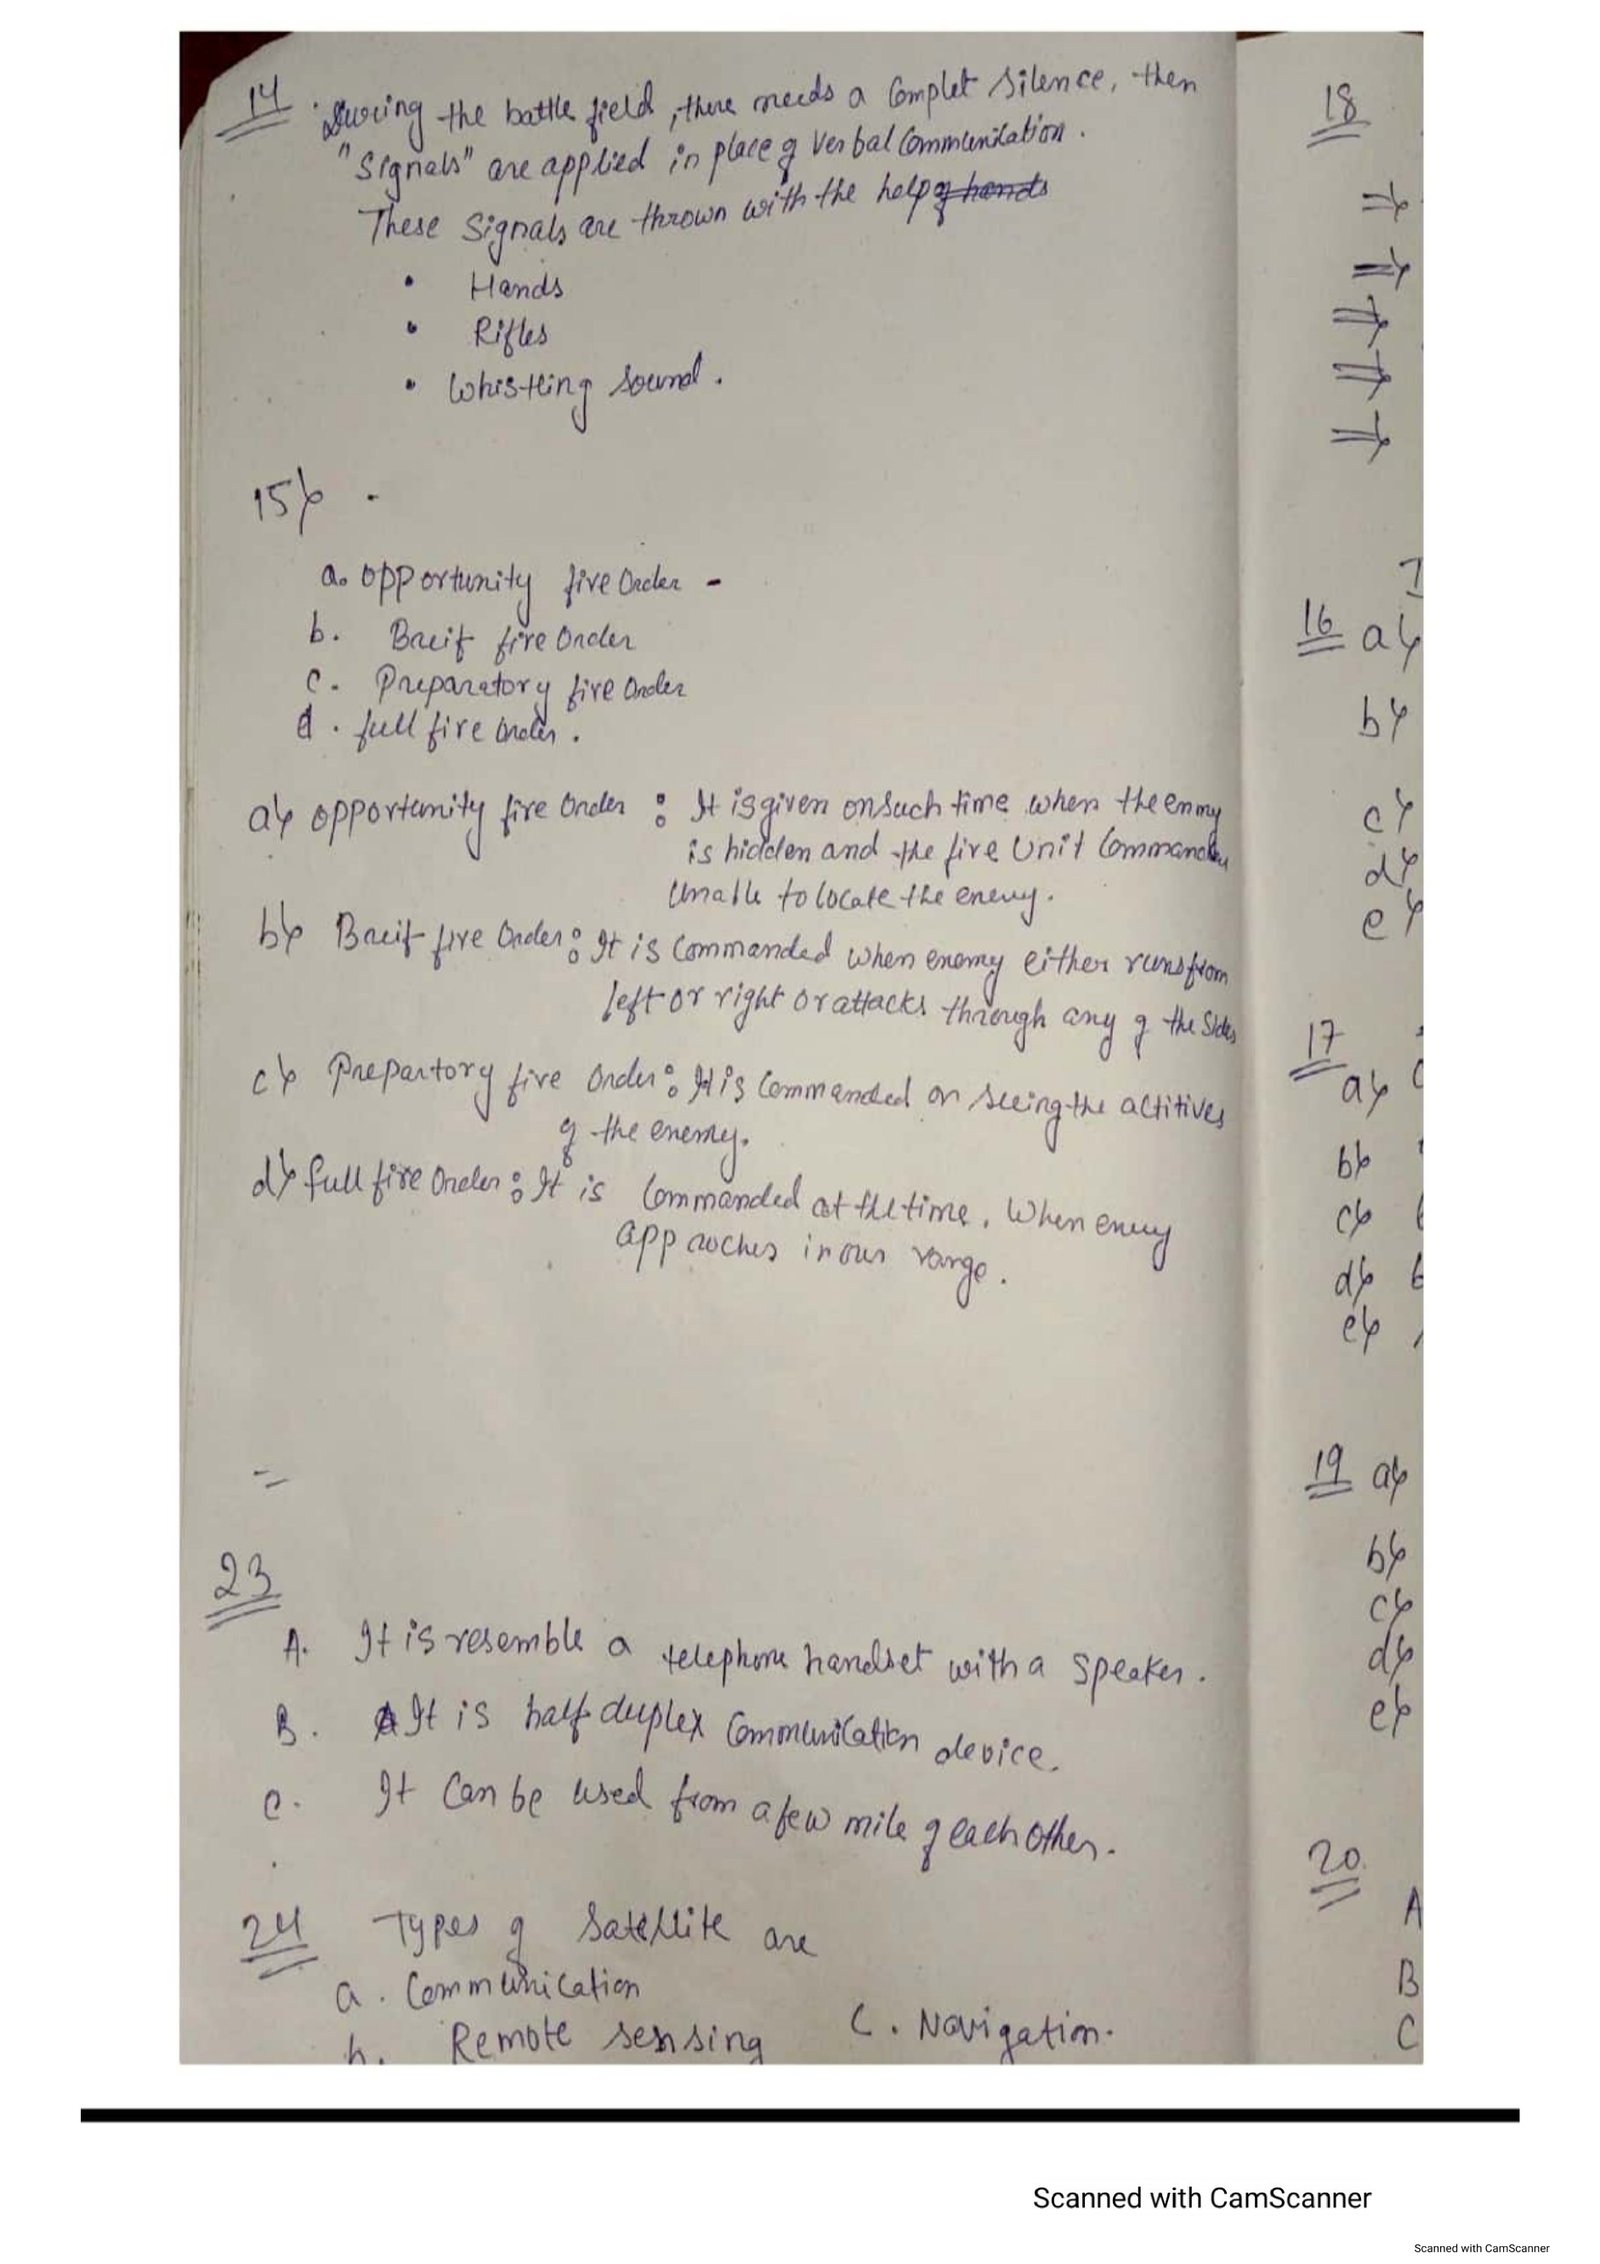 14. During the battle field, there needs a Complet Silence, then
"Signals" are applied in place of Verbal Communication.
These Signals are thrown with the help of hands
• Hands
• Rifles
• Whistling Sound.
15) -
a. opportunity fire Order -
b. Breif fire Order
c. Preparatory fire Order
d. full fire Order.
a) opportunity fire Order : It is given on such time when the enmy
is hidden and the fire Unit Commander
Unable to locate the enemy.
b) Breif fire Order : It is Commanded when enemy either runs from
left or right or attacks through any of the sides
c) Prepartory fire Order : It is Commanded on seeing the actitives
of the enemy.
d) full fire Order : It is Commanded at the time. When enemy
approches in our range.
=
23
A. It is resemble a telephone handset with a speaker.
B. It is half duplex Communication device.
C. It Can be used from a few mile of each other.
24 Types of Satellite are
a. Communication
b. Remote sensing C. Navigation.
18
⇒
⇒
⇒
⇒
⇒
16 a)
b)
c)
d)
e)
17
a)
b)
c)
d)
e)
19 a)
b)
c)
d)
e)
20
A
B
C
Scanned with CamScanner
Scanned with CamScanner